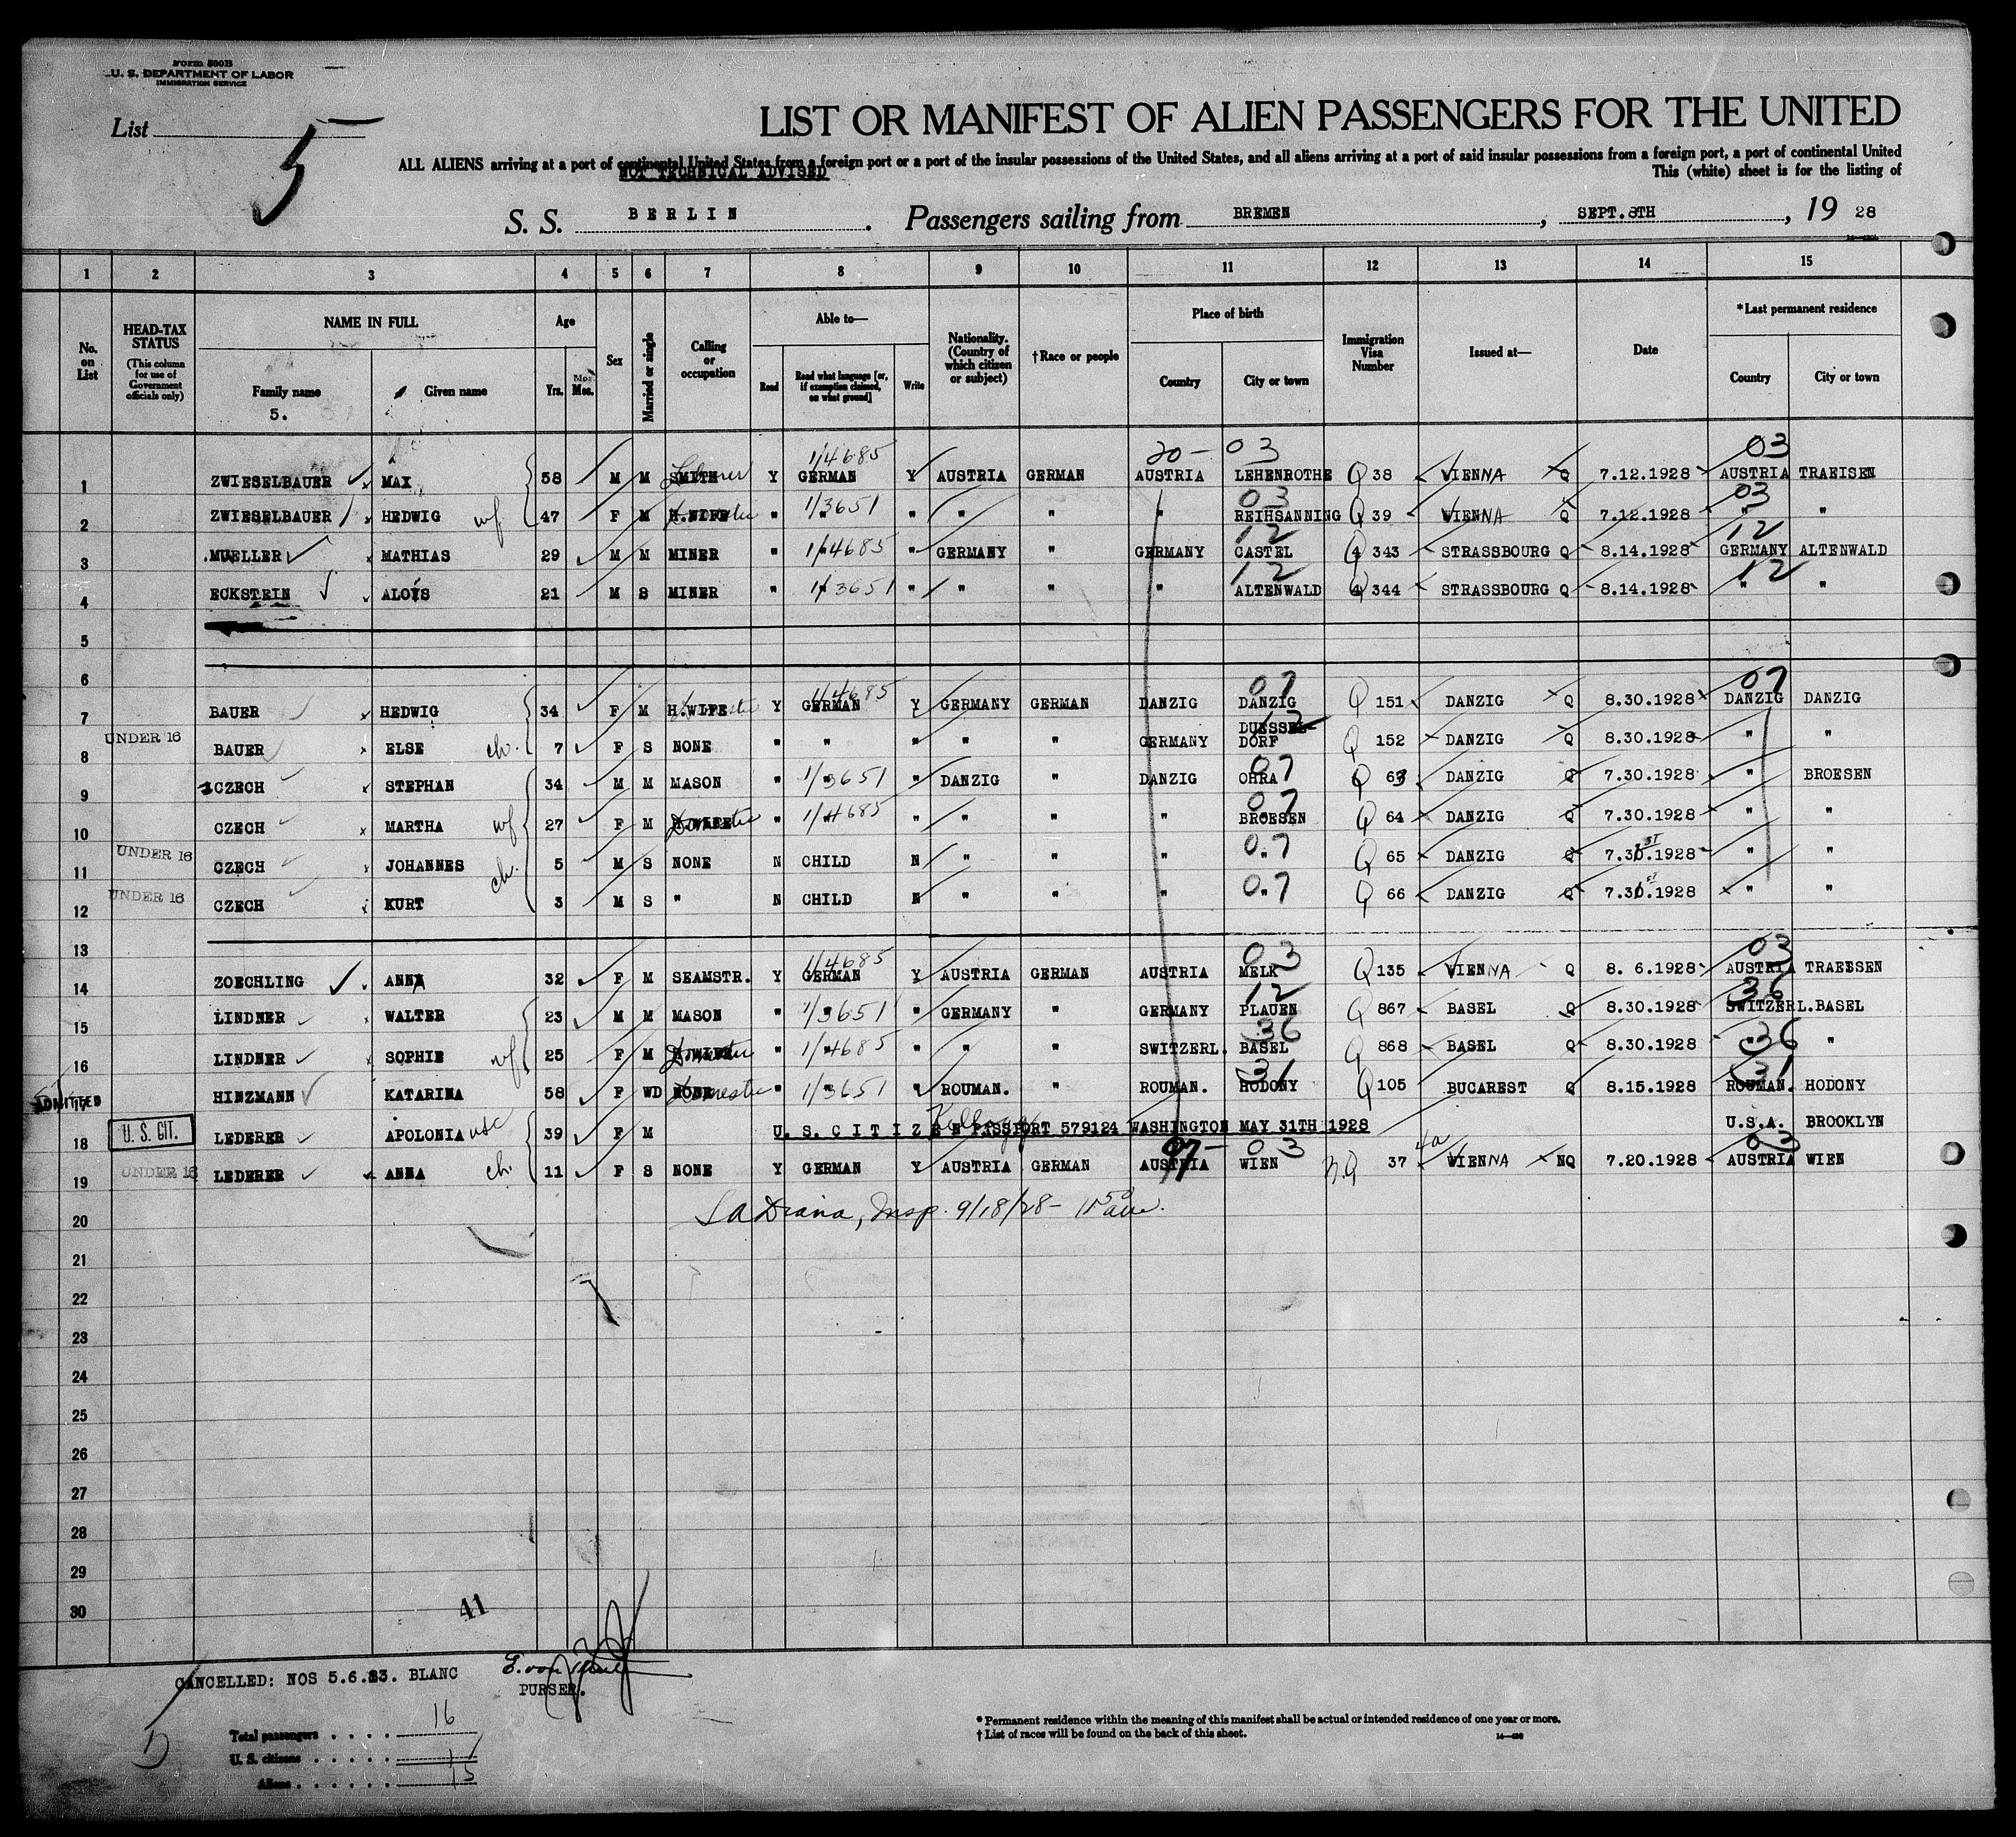 Form 500B
U. S. DEPARTMENT OF LABOR
IMMIGRATION SERVICE
List 5
LIST OR MANIFEST OF ALIEN PASSENGERS FOR THE UNITED
ALL ALIENS arriving at a port of continental United States from a foreign port or a port of the insular possessions of the United States, and all aliens arriving at a port of said insular possessions from a foreign port, a port of continental United
NOT TECHNICAL ADVISED
This (white) sheet is for the listing of
S. S. BERLIN. Passengers sailing from BREMEN, SEPT.8TH, 19 28
1 2 3 4 5 6 7 8 9 10 11 12 13 14 15
No. on List
HEAD-TAX STATUS
(This column for use of Government officials only)
NAME IN FULL
Family name
5.
Given name
Age
Yrs. Mos.
Sex
Married or single
Calling or occupation
Able to—
Read
Read what language [or, if exemption claimed, on what ground]
Write
Nationality. (Country of which citizen or subject)
†Race or people
Place of birth
Country
City or town
Immigration Visa Number
Issued at—
Date
*Last permanent residence
Country
City or town
1/4685 20- 03 03
1 ZWIESELBAUER MAX 58 M M SMITH Y GERMAN Y AUSTRIA GERMAN AUSTRIA LEHENROTHE Q 38 VIENNA Q 7.12.1928 AUSTRIA TRAEISEN
2 ZWIESELBAUER HEDWIG wf 47 F M H.WIFE " 1/3651 " " " " 03 REIHSANNING Q 39 VIENNA Q 7.12.1928 03 " "
3 MUELLER MATHIAS 29 M M MINER " 1/4685 " GERMANY " GERMANY 12 CASTEL Q 343 STRASSBOURG Q 8.14.1928 12 GERMANY ALTENWALD
4 ECKSTEIN ALOYS 21 M S MINER " 1/3651 " " " " 12 ALTENWALD Q 344 STRASSBOURG Q 8.14.1928 12 " "
5
6
1/4685 07 07
7 BAUER HEDWIG 34 F M H.WIFE Y GERMAN Y GERMANY GERMAN DANZIG DANZIG Q 151 DANZIG Q 8.30.1928 DANZIG DANZIG
8 UNDER 16 BAUER ELSE ch. 7 F S NONE " " " " " GERMANY DUESSEL DORF 12 Q 152 DANZIG Q 8.30.1928 " "
9 CZECH STEPHAN 34 M M MASON " 1/3651 " DANZIG " DANZIG 07 OHRA Q 63 DANZIG Q 7.30.1928 " BROESEN
10 CZECH MARTHA wf 27 F M Domestic " 1/4685 " " " " 07 BROESEN Q 64 DANZIG Q 7.30.1928 " "
11 UNDER 16 CZECH JOHANNES ch. 5 M S NONE N CHILD N " " " 07 " Q 65 DANZIG Q 7.30.1928 " "
12 UNDER 16 CZECH KURT 3 M S " N CHILD N " " " 07 " Q 66 DANZIG Q 7.30.1928 " "
13
1/4685 03 03
14 ZOECHLING ANNA 32 F M SEAMSTR. Y GERMAN Y AUSTRIA GERMAN AUSTRIA MELK Q 135 VIENNA Q 8. 6.1928 AUSTRIA TRAESSEN
15 LINDNER WALTER 23 M M MASON " 1/3651 " GERMANY " GERMANY 12 PLAUEN Q 867 BASEL Q 8.30.1928 36 SWITZERL. BASEL
16 LINDNER SOPHIE wf 25 F M Domestic " 1/4685 " " " SWITZERL. 36 BASEL Q 868 BASEL Q 8.30.1928 36 " "
17 ADMITTED HINZMANN KATARINA 58 F WD NONE Domestic " 1/3651 " ROUMAN. " ROUMAN. 31 HODONY Q 105 BUCAREST Q 8.15.1928 31 ROUMAN. HODONY
18 U. S. CIT. LEDERER APOLONIA usc 39 F M U. S. CITIZEN PASSPORT 579124 WASHINGTON MAY 31TH 1928 U.S.A. BROOKLYN
19 UNDER 16 LEDERER ANNA ch. 11 F S NONE Y GERMAN Y AUSTRIA GERMAN 97- AUSTRIA 03 WIEN N.Q 37 4a VIENNA NQ 7.20.1928 03 AUSTRIA WIEN
20 Insp. 9/18/28-
21
22
23
24
25
26
27
28
29
30
41
CANCELLED: NOS 5.6.13. BLANC
PURSER.
Total passengers 16
U. S. citizens 1
Aliens 15
* Permanent residence within the meaning of this manifest shall be actual or intended residence of one year or more.
† List of races will be found on the back of this sheet.